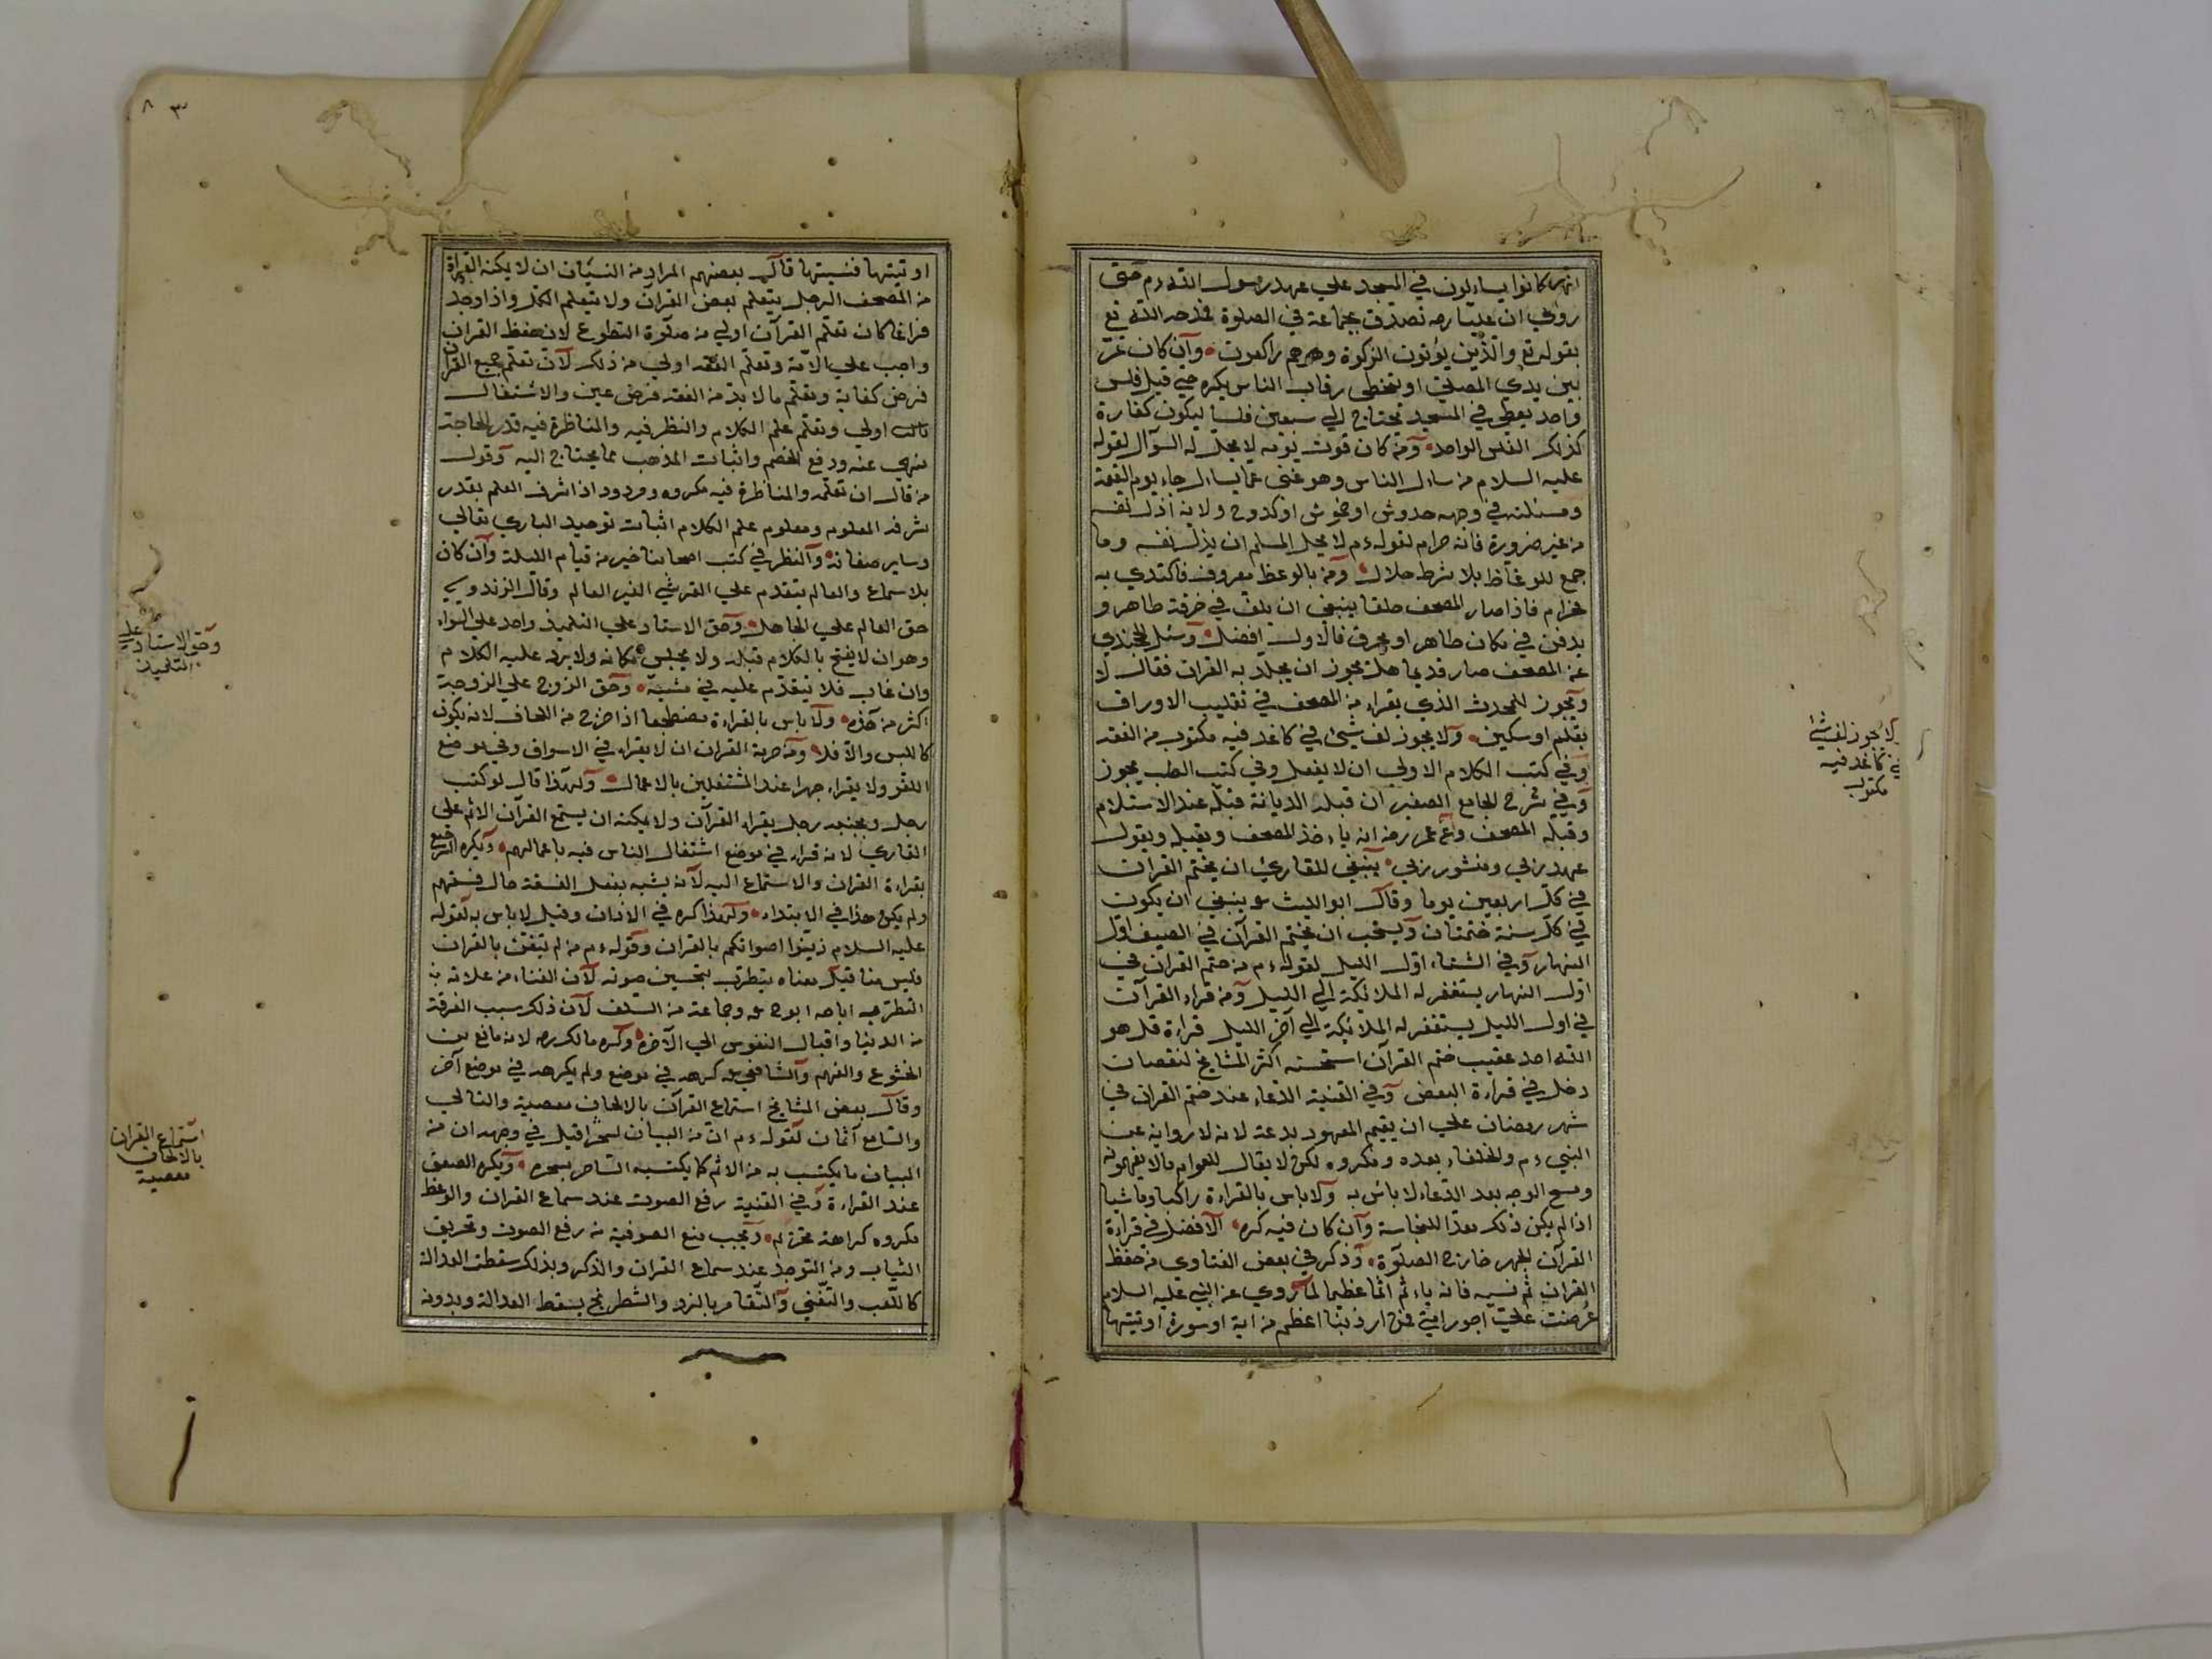 انهم كانوا يسألون في المسجد علي عهد رسول الله ءم حتي
روي ان عليا رضه تصدق بخاتمه في الصلوة فمدحه الله تع
بقوله تع والذين يؤتون الزكوة وهم راكعون وان كان تمرّ
بين يدي المصلي او يتخطى رقاب الناس يكره حتي قيل فلس
واحد يعطي في المسجد تحتاج الي سبعين فلسا ليكون كفارة
لذلك الفلس الواحد ومن كان قوت يومه لا يحل له السوآل لقوله
عليه السلام من سال الناس وهو غني عما يسال جاء يوم القيمة
ومسئلته في وجهه خدوش او خموش او كدوح ولانه اذل نفسه
من غير ضرورة فانه حرام لقوله ءم لا يحل للمسلم ان يذل نفسه وما
جمع للوعّاظ بلا شرط حلال ومن بالوعظ معروف فاكتدي به
فحرام فاذا صار المصحف خلقا ينبغي ان يلف في خرقة طاهر و
يدفن في مكان طاهر او يحرق فالاول افضل وسئل الخجندي
عن المصحف صار قديما هل يجوز ان يجلد به القران فقال لا
ويجوز للمحدث الذي يقراء من المصحف في تقليب الاوراق
بقلم او سكين ولا يجوز لف شيئ في كاغد فيه مكتوب من الفقه
وفي كتب الكلام الاولي ان لا يفعل وفي كتب الطب يجوز
وفي شرح الجامع الصغير ان قبلة الديانة قبلة عند الاستلام
وقبلة المصحف وعن عمر رضه انه ياءخذ المصحف ويقبله ويقول
عهد ربي ومنشور ربي ينبغي للقاريء ان يختم القران
في كل اربعين يوما وقال ابو الليث ينبغي ان يكون
في كل سنة ختمتان ويستحب ان يختم القرآن في الصيف اول
النهار وفي الشتاء اول الليل لقوله ءم من ختم القران في
اول النهار يستغفر له الملائكة الي الليل ومن قراء القرآن
في اول الليل يستغفر له الملائكة الي آخر الليل قراءة قل هو
الله احد عقيب ختم القرآن استحسنه اكثر المشايخ لنقصان
دخل في قراءة البعض وفي القنية الدعاء عند ختم القران في
شهر رمضان علي ان يقيم المعهود بدعة لانه لا رواية عن
النبي ءم والخلفاء بعده ومكروه لكن لا يقال للعوام مالا يفهمونه
ومسح الوجه بعد الدعاء لا باس به ولا باس بالقراءة راكبا وماشيا
اذا لم يكن ذلك معدا للنجاسة وان كان فيه كره الافضل في قراءة
القرآن الجهر خارج الصلوة وذكر في بعض الفتاوي من حفظ
القران ثم نسيه فانه ياءثم اثما عظيما لما روي عن النبي عليه السلام
عرضت علي اجور امتي فلم ار ذنبا اعظم من اية او سورة اوتيتها
لا يجوز لف شيئ
في كاغد فيه
مكتوب
٨٣
اوتيتها فنسيتها قال بعضهم المراد من النسيان ان لا يمكنه القراءة
من المصحف الرجل يتعلم بعض القرآن ولا يتعلم الكل واذا وجد
فراغا كان تعلم القرآن اولي من صلوة التطوع لان حفظ القران
واجب علي الامة وتعلم الفقه اولي من ذلك لان تعلم جميع القران
فرض كفاية وتعلم ما لا بد من الفقه فرض عين والاشتغال
بالـ اولي وتعلم علم الكلام والنظر فيه والمناظرة فيه قدر الحاجة
منهي عنه ودفع الخصم واثبات المذهب مما يحتاج اليه وقول
من قال ان تعلمه والمناظرة فيه مكروه مردود اذا شرف العلم بقدر
شرف المعلوم ومعلوم علم الكلام اثبات توحيد الباري تعالي
وساير صفاته والنظر في كتب اصحابنا خير من قيام الليلة وان كان
بلا سماع والعالم يتقدم علي القرشي الغير العالم وقال الزندويسي
حق العالم علي الجاهل وحق الاستاد علي التلميذ واحد علي السواء
وهو ان لا يفتح بالكلام قبله ولا يجلس مكانه ولا يرد عليه الكلام
وان غاب فلا يتقدم عليه في مشيه وحق الزوج علي الزوجة
اكثر من هذه ولا باس بالقراءة مضطجعا اذا خرج من اللحاف لانه يكون
كاللبس والا فلا ومن حرمة القران ان لا يقراء في الاسواق وفي موضع
اللغو ولا يقراء جهرا عند المشتغلين بالاعمال ولهذا قال لو كتب
رجل وبجنبه رجل يقراء القرآن ولا يمكنه ان يستمع القرآن الاثم علي
القاري لانه قراء في موضع اشتغال الناس فيه باعمالهم ويكره الترجيع
بقراءة القران والاستماع اليه لانه يشبه بفعل الفسقة حال فسقهم
ولم يكن هذا في الابتداء ولهذا كره في الاذان وقيل لا باس به لقوله
عليه السلام زينوا اصواتكم بالقران وقوله ءم من لم يتغن بالقران
فليس منا قيل معناه يتطرب بتحسين صوته لان الغناء من علامة
التطرب اباحه ابو ح وجماعة من السلف لان ذلك سبب الفرقة
من الدنيا واقبال النفوس الي الآخرة وكره مالك ره لانه مانع من
الخشوع والفهم والشافعي كرهه في موضع ولم يكرهه في موضع آخر
وقال بعض المشايخ استماع القرآن بالالحان معصية والتالي
والسامع آثمان لقوله ءم ان من البيان لسحرا قيل في وجهه ان من
البيان ما يكتب به من الاثم كما يكتسبه الساحر بسحره ويكره الصعق
عند القراءة وفي القنية رفع الصوت عند سماع القران والوعظ
مكروه كراهة تحريم ويجب منع الصوفية من رفع الصوت وتخريق
الثياب ومن التوجد عند سماع القران والذكر وبذلك سقطت العدالة
كاللعب والتغني والتقامر بالنرد والشطرنج يسقط العدالة وبدونه
وحق الاستاد علي
التلميذ
استماع القران
بالالحان
معصية